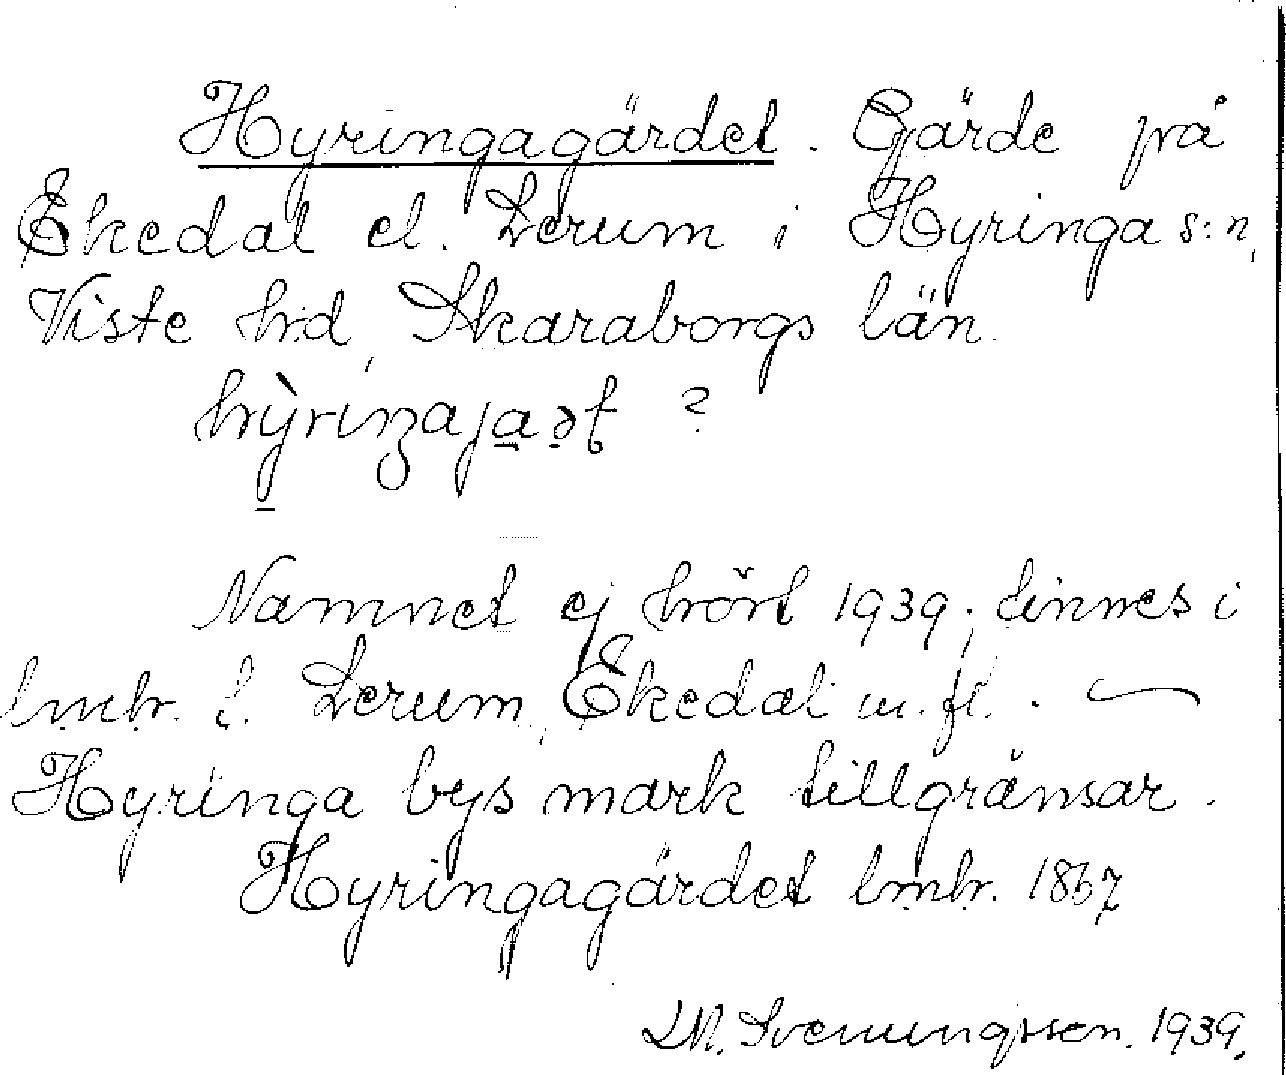 Hyringagärdet. Gärde på
Ekedal el. Lerum i Hyringa s:n,
Viste hd, Skaraborgs län.
Namnet ej hört 1939; finnes i
lmhr. f. Lerum, Ekedal m.fl. . —
Hyringa bys mark tillgränsar.
Hyringagärdet lmhr. 1867
Svenungsson. 1939.